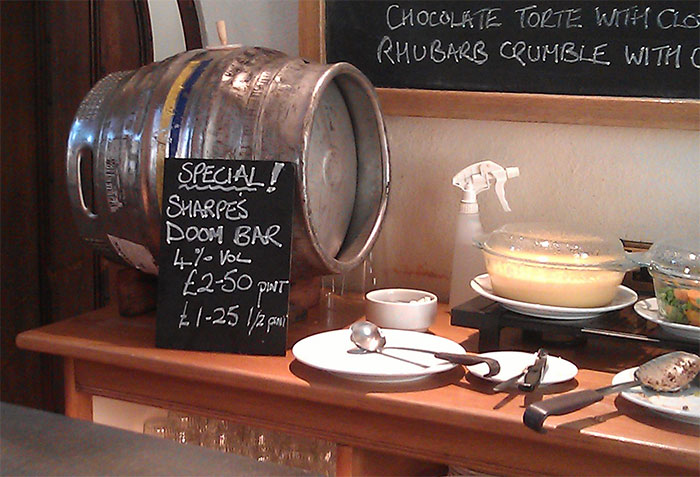 CHOCOLATE TORTE WITH CLO
RHUBARB CRUMBLE WITH C
SPECIAL!
SHARPE'S
DOOM BAR
4% VOL
£2-50 PINT
£1-25 1/2 PINT